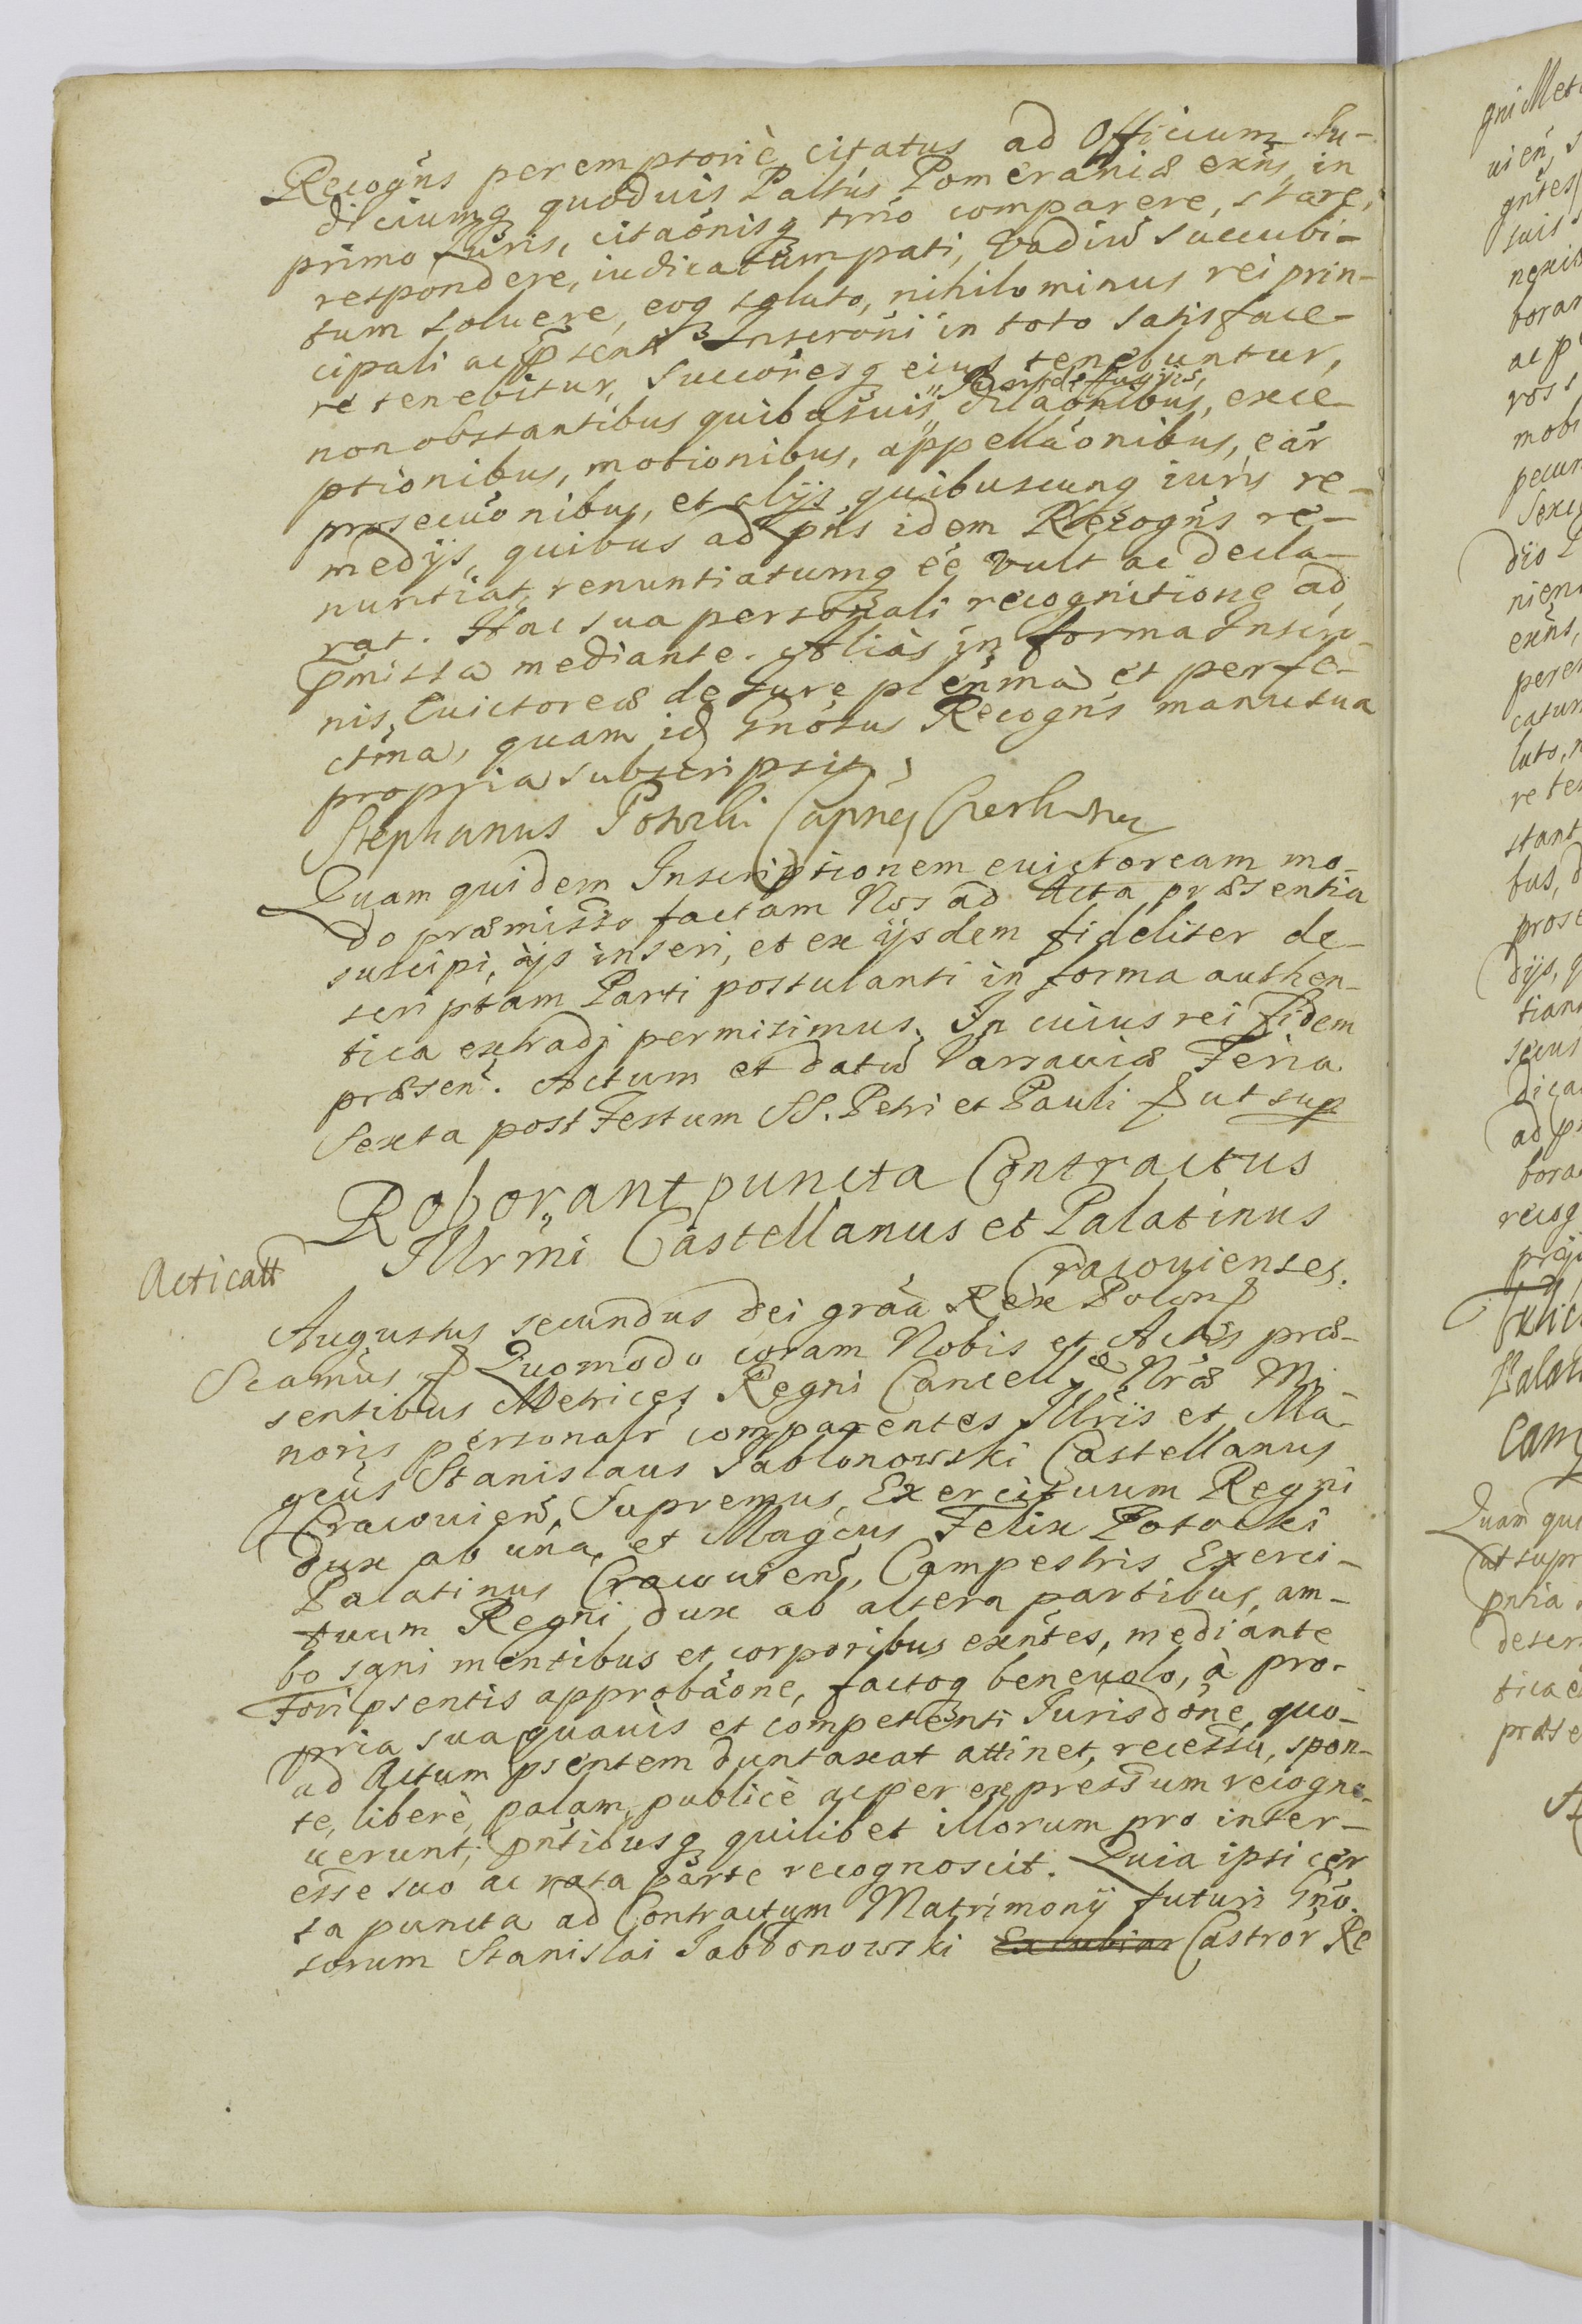 Recogns peremptoriè citatus ad Officium Iu-
diciumq quoduis Paltus Pomeraniæ exns, in
primo Iuris, citaonisq trno comparere, stare,
respondere, iudicatum pati, Vadiu succubi-
tum soluere, eoq soluto, nihilominus rei prin-
cipali ac psenti Inscroni in toto satisface-
re tenebitur, succoresq eius tenebuntur,
non obstantibus quibusuis, diffugijs,
dilaonibus, exce-
ptionibus, motionibus, appellaonibus, ear
prosecuonibus, et alijs quibuscunq iuris re-
medijs, quibus ad pns idem Recogns re-
nuntiat, renuntiatumq ee vult ac decla-
rat. Hac sua personali recognitione ad
pmissa mediante. Aliàs in forma Inscrip-
nis, Euictoreæ de Iure plenma et perfe-
ctma, quam id Gnosus Recogns manu sua
propria subscripsit.
Stephanus Potocki Capnes
Quam quidem Inscriptionem euictoream mo-
do præmisso factam Nos ad Acta præsentia
suscipi, ijs inseri, et ex ijsdem fideliter de-
scriptam Parti postulanti in forma authen-
tica extradj permisimus. In cuius rei fidem
præsen. Actum et datu Varsauiæ Feria
Sexta post Festum SS. Petri et Pauli p ut sup
Roborant puncta Contractus
Illrmi Castellanus et Palatinus
Cracouienses.
Acticatt
Augustus secundus Dei graa Rex Polon p
Scamus p Quomodo coram Nobis et Actis præ-
sentibus Metrices Regni Cancell e Nræ Mi
noris personalr comparentes Illris et Ma-
gcus Stanislaus Jablonowski Castellanus
Cracouien, Supremus Exercituum Regni
dux ab una, et Magcus Felix Potocki
Palatinus Cracouien, Campestris Exerci-
tuum Regni dux ab altera partibus, am-
bo sani mentibus et corporibus exntes, mediante
Fori psentis approbaone, factoq beneuolo, à pro-
pria sua quauis et competenti Jurisdone, quo-
ad Actum psentem duntaxat attinet, recessu, spon-
te, liberè, palam, publicè ac per expressum recogno-
uerunt, pntibusq quilibet illorum pro inter-
esse suo ac rata parte recognoscit. Quia ipsi cer
ta puncta ad Contractum Matrimonij futuri Gno-
sorum Stanislai Jabłonowski Excubiar Castror Re